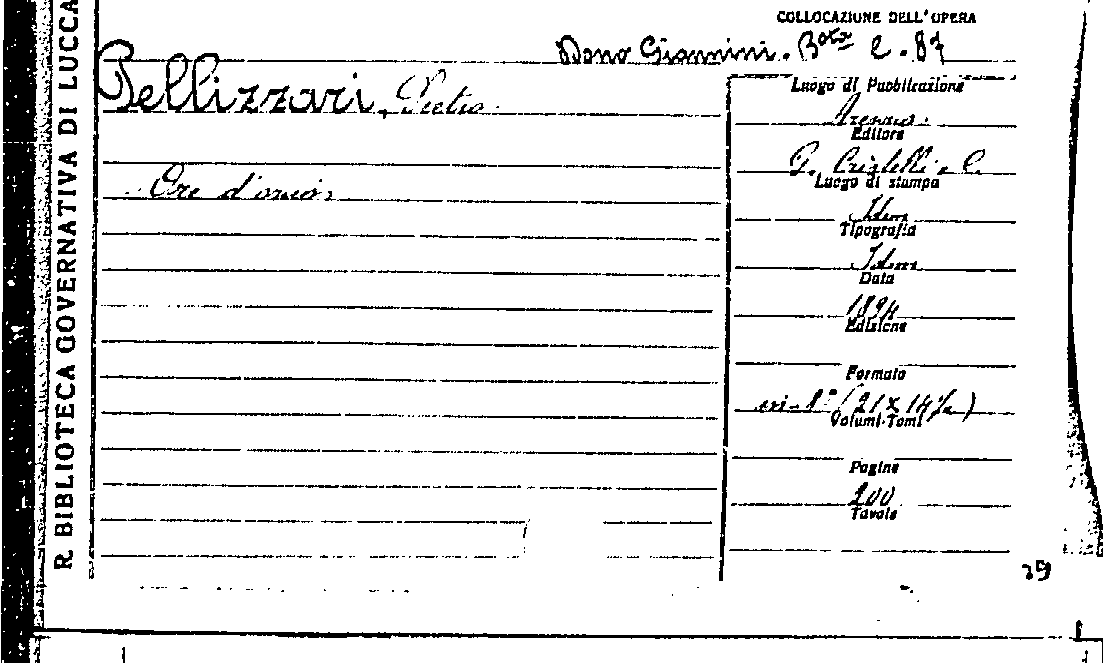 R. BIBLIOTECA GOVERNATIVA DI LUCCA
COLLOCAZIONE DELL'OPERA
Dono Giannini. B.ta e. 87
Pellizzari, Pietro.
Ore d'ozio.
Luogo di Pubblicazione
Arezzo.
Editore
G. Cristelli e C.
Luogo di stampa
Idem
Tipografia
Idem
Data
1894
Edizione
Formato
in-8° (21 x 14
Volumi-Tomi
Pagine
200
Tavole
29